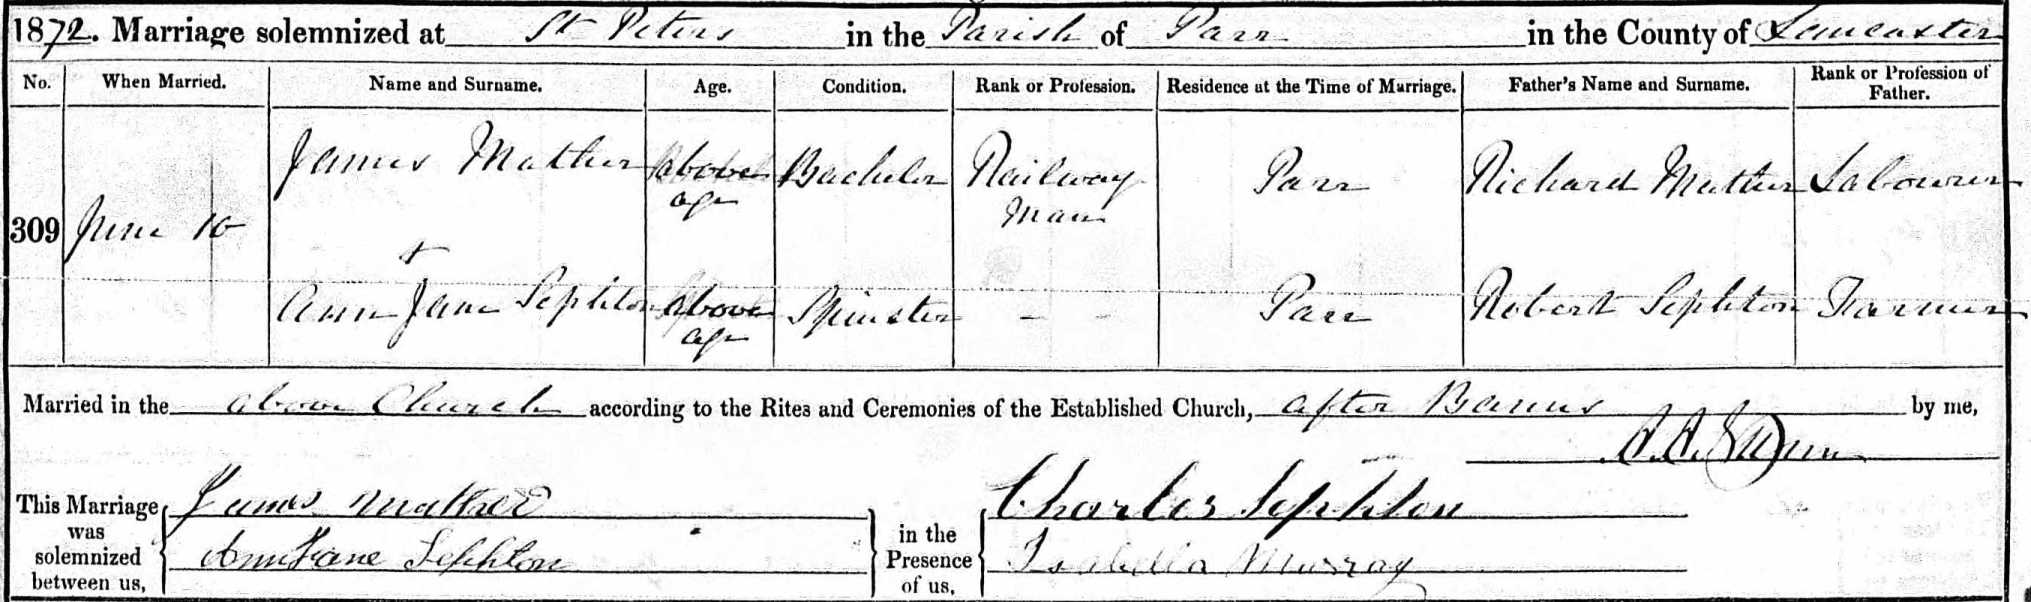 1872. Marriage solemnized at St Peters in the Parish of Parr in the County of Lancaster
No. When Married. Name and Surname. Age. Condition. Rank or Profession. Residence at the Time of Marriage. Father's Name and Surname. Rank or Profession of Father.
309 June 10 James Mather Above age Bachelor Railway Man Parr Richard Mather Labourer
Ann Jane Sephton Above age Spinster - - Parr Robert Sephton Farmer
Married in the above Church according to the Rites and Ceremonies of the Established Church, after Banns by me,
This Marriage was solemnized between us, James Mather
Ann Jane Sephton
in the Presence of us, Charles Sephton
Isabella Murray